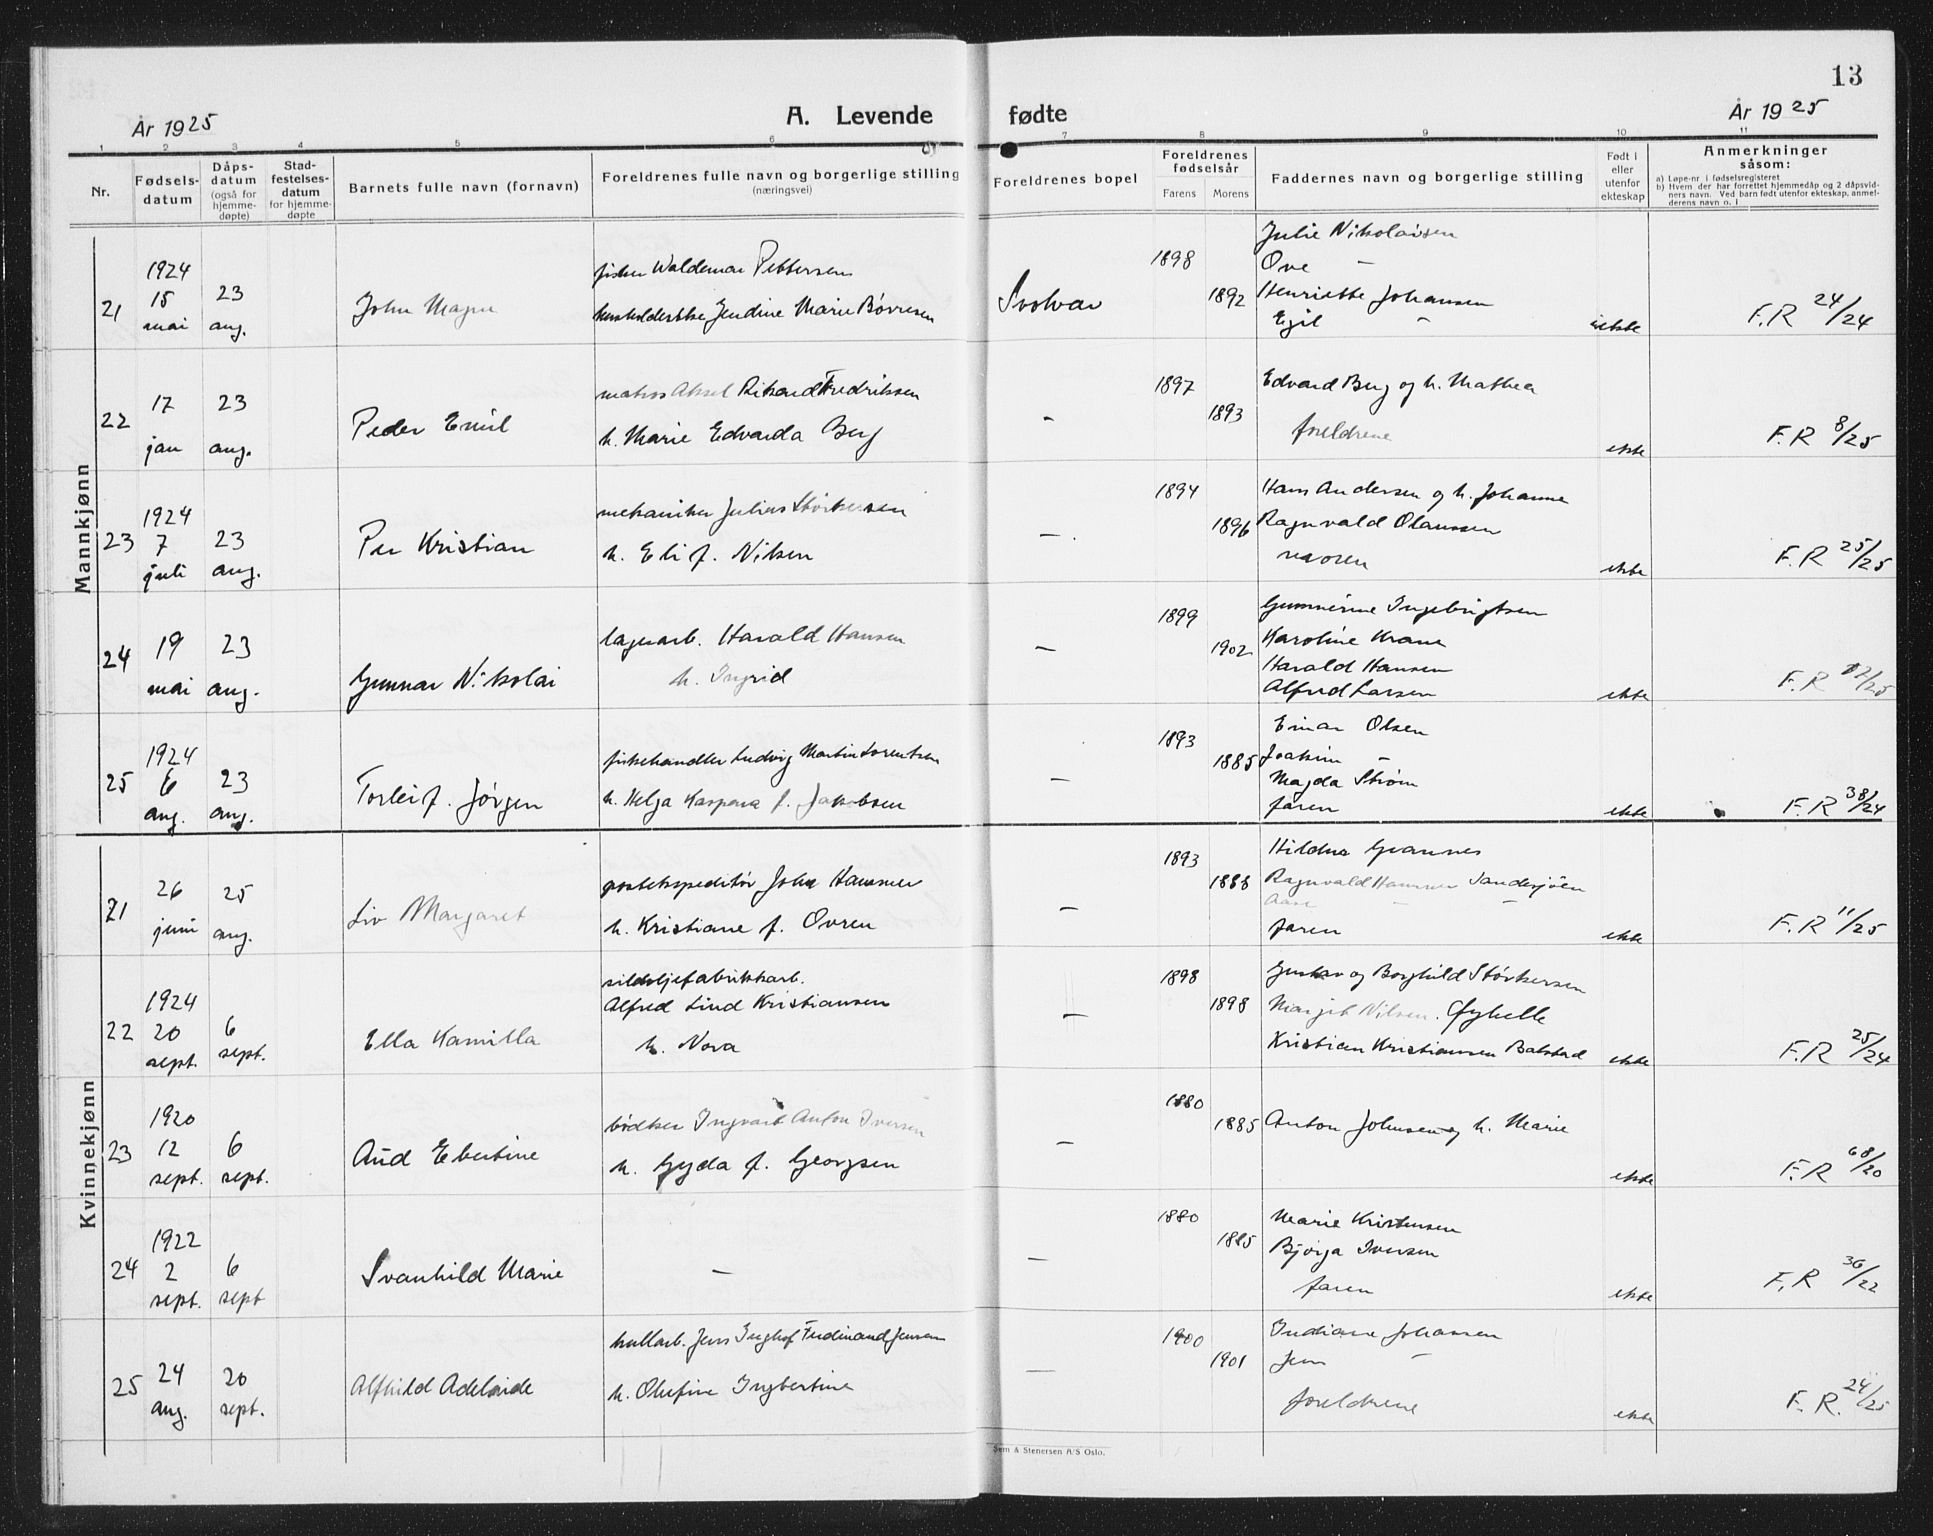 13
År 1925
A. Levende fødte
År 1925
1 2 3 4 5 6 7 8 9 10 11
Nr.
Fødsels-
datum
Dåps-
datum
(også for
hjemme-
døpte)
Stad-
festelses-
datum
for hjemme-
døpte
Barnets fulle navn (fornavn)
Foreldrenes fulle navn og borgerlige stilling
(næringsvei)
Foreldrenes bopel
Foreldrenes
fødselsår
Farens Morens
Faddernes navn og borgerlige stilling
Født i
eller
utenfor
ekteskap
Anmerkninger
såsom:
a) Løpe-nr i fødselsregisteret
b) Hvem der har forrettet hjemmedåp og 2 dåpsvid-
ners navn. Ved barn født utenfor ekteskap, anmel-
derens navn o. l
Mannkjønn
21
1924
15
mai
23
aug.
John Magne
fisker Waldemar Pettersen
Jendine Marie Børresen
Svolvær
1898
1892
Julie Nikolaisen
Ove —
Henriette Johansen
Egil —
uekte
F.R 24/24
22
17
jan
23
aug.
Peder Emil
matros Aksel Rikard Fredriksen
h. Marie Edvarda Berg
—
1897
1893
Edvard Berg og h. Mathea
foreldrene
ekte
F.R 8/25
23
1924
7
juli
23
aug.
Per Kristian
mekaniker Julius Størkersen
h. Eli f. Nilsen
—
1894
1896
Hans Andersen og h. Johanne
Ragnvald Olaussen
moren
ekte
F.R 25/25
24
19
mai
23
aug.
Gunnar Nikolai
lagerarb. Harald Hansen
h. Ingrid
—
1899
1902
Ingebrigtsen
Karoline Krane
Harald Hansen
Alfred Larsen
ekte
F.R
25
1924
6
aug.
23
aug.
Torleif Jørgen
fiskehandler Ludvig Martin Lorentsen
h. Helga Kaspara f. Jakobsen
—
1893
1885
Einar Olsen
Joakim —
Magda Strøm
faren
ekte
F.R 38/24
Kvinnekjønn
21
26
juni
25
aug.
Liv Margaret
postekspeditør John Hammer
h. Kristiane f. Ovren
—
1893
1888
Hildur
Ragnvald Hammer Sandesjøen
Aase — —
faren
ekte
F.R 11/25
22
1924
20
sept.
6
sept.
Ella Kamilla
sildoljefabrikkarb.
Alfred Lind Kristiansen
h. Nora
—
1898
1898
Gustav og Borghild Størkersen
Margit Nilsen, Øyhelle
Kristian Kristiansen Balstad
ekte
F.R 25/24
23
1920
12
sept.
6
sept.
Aud Ebertine
bødker Ingvart Anton Iversen
h. Gyda f. Georgsen
—
1880
1885
Anton Johnsen og h. Marie
ekte
F.R 68/20
24
1922
2
sept.
6
sept
Svanhild Marie
—
—
1880
1885
Marie Kristensen
Bjørga Iversen
faren
ekte
F.R 36/22
25
24
aug.
20
sept.
Alfhild Adelaide
kullarb. Jens Inghof Ferdinand Jensen
h. Olufine Ingbertine
—
1900
1901
Indiane Johansen
Jens —
foreldrene
ekte
F.R. 24/25
Sem & Stenersen A/S Oslo.